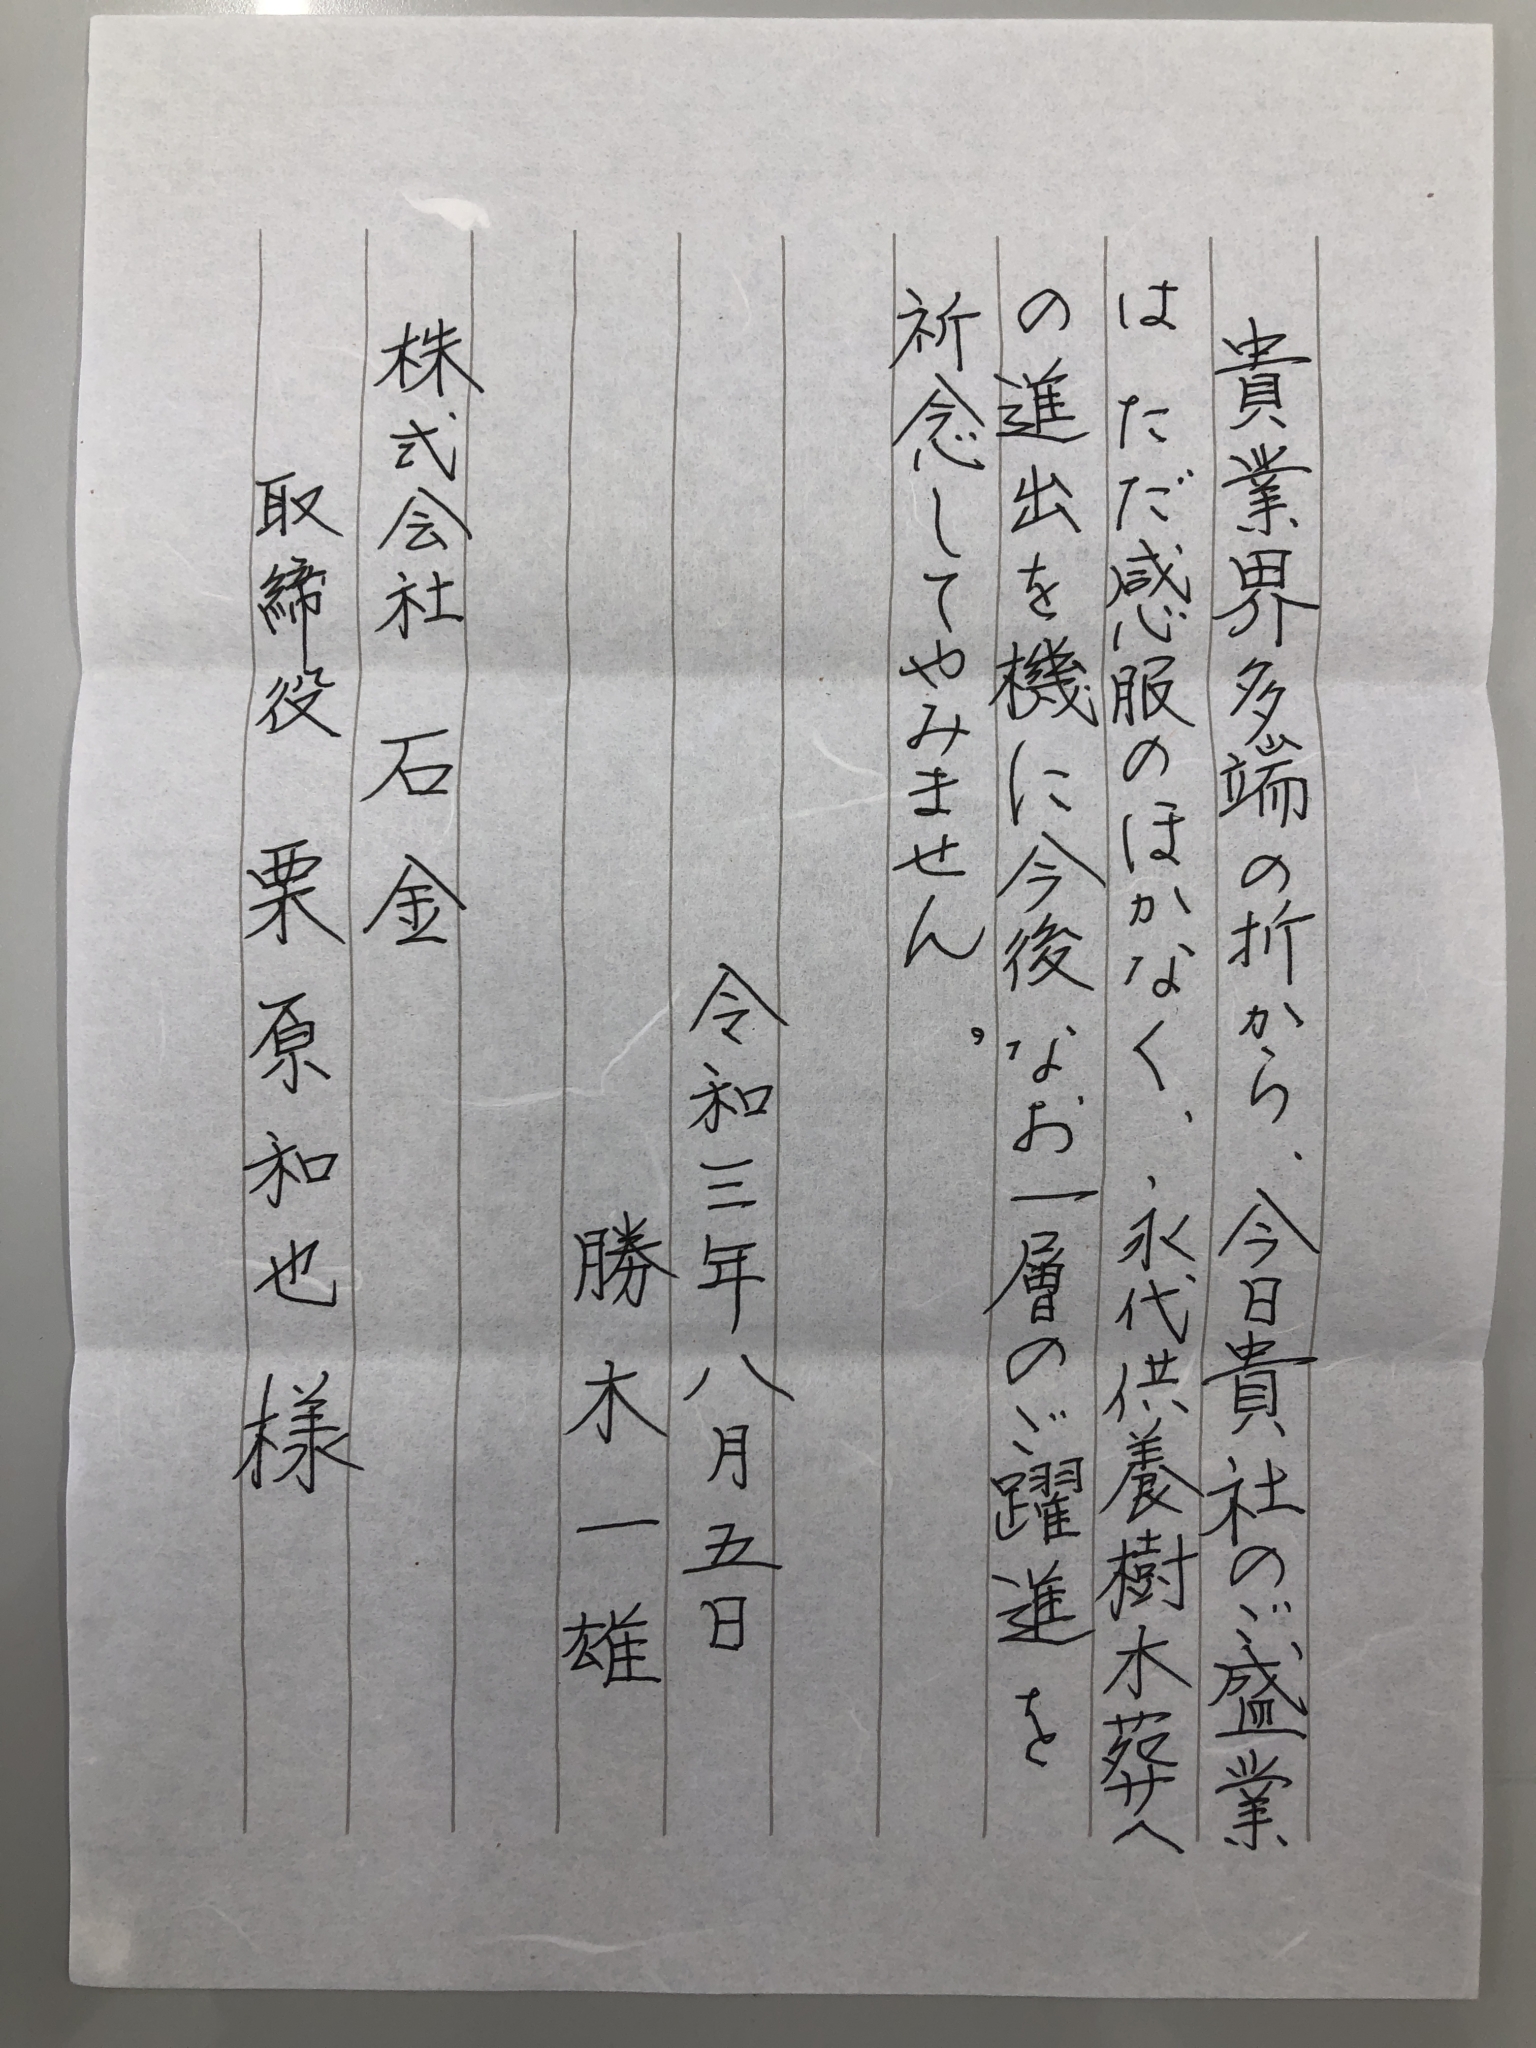 貴業界多端の折から、今日貴社のご盛業
はただだ感服のほかなく、永代供養樹木葬へ
の進出を機に今後なお一層のご躍進を
祈念してやみません。
令和三年八月五日
勝木一雄
株式会社 石金
取締役 栗原和也様